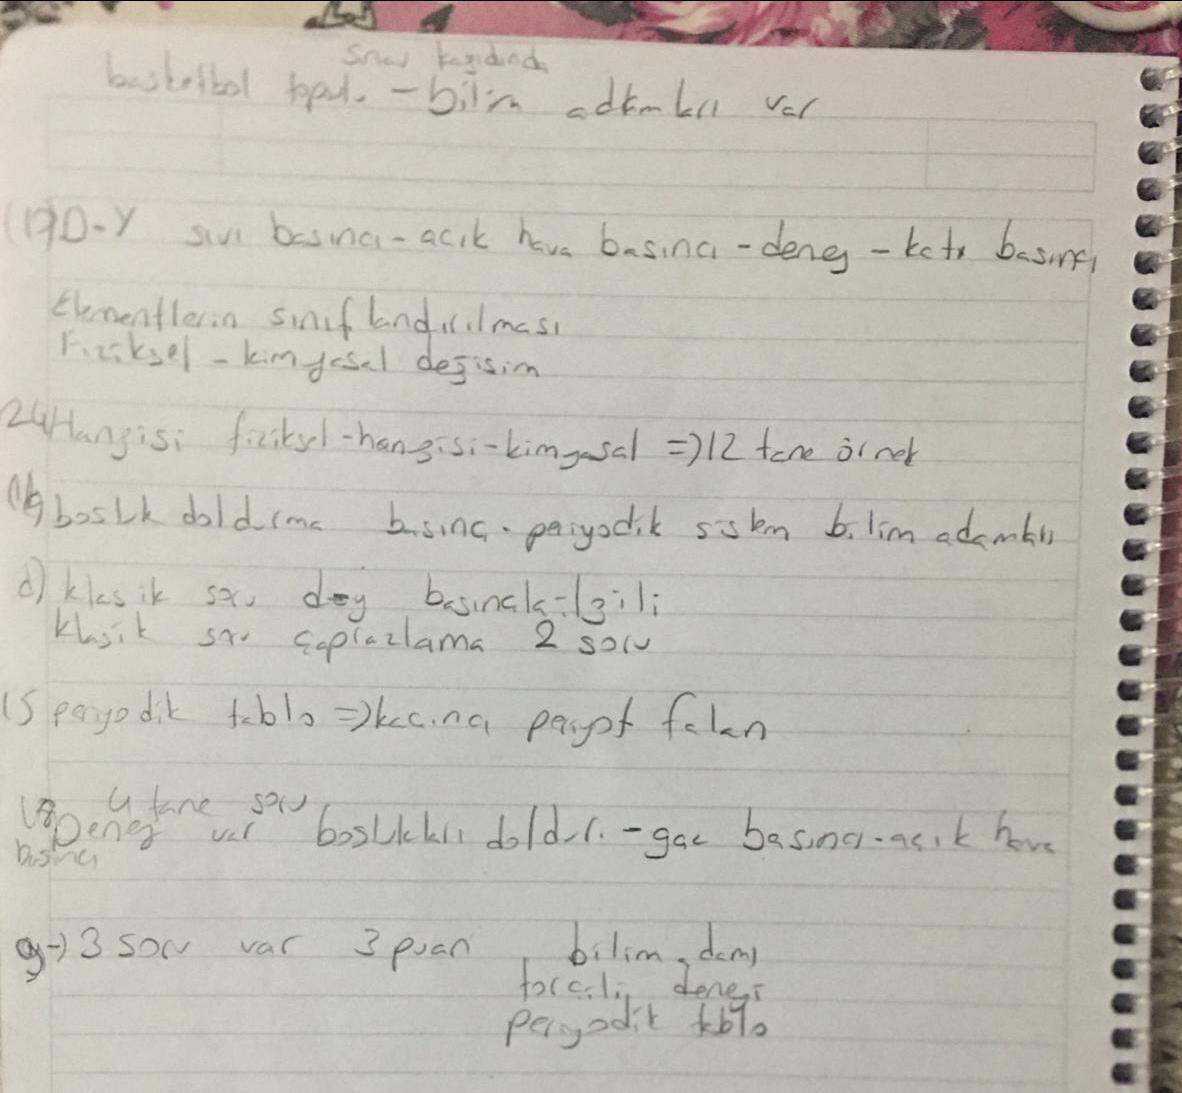 sınav kağıdında
basketbol topu. - bilim adamları var
D-Y sıvı basıncı - acık hava basıncı - deney - katı basıncı
Elementlerin sınıflandırılması
Fiziksel - kimyasal değişim
24 Hangisi fiziksel - hangisi - kimyasal => 12 tane örnek
boşluk doldurma basınç. peryodik sistem bilim adamları
d) klasik soru basıncla ilgili
klasik soru çaprazlama 2 soru
15 peryodik tablo => kacıncı peryot falan
4 tane soru
Deney var boşlukları doldur. - gaz basıncı - açık hava
basıncı
g-) 3 soru var 3 puan bilim adamı
torçelli deneyi
peryodik tablo